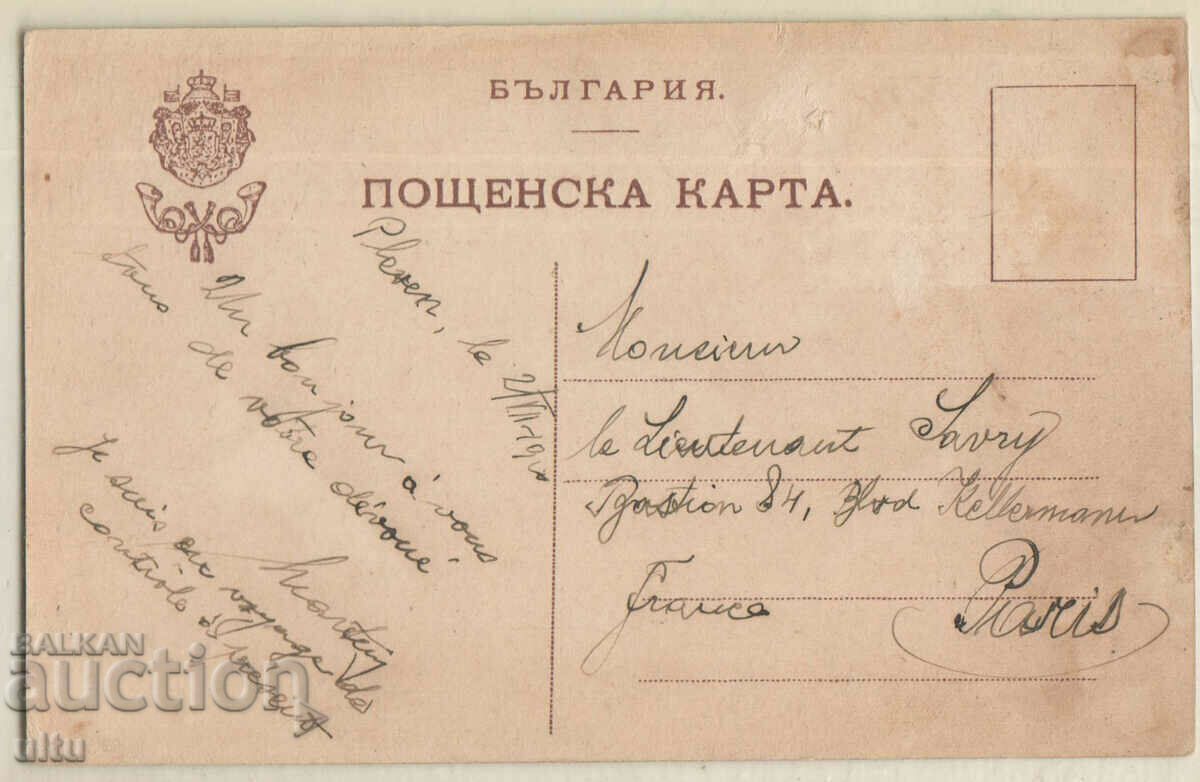 БЪЛГАРИЯ.
ПОЩЕНСКА КАРТА.
Pleven, le
Un bonjour à vous
tous de votre dévoué
Je suis en voyage de
contrôle à présent
Monsieur
le Lieutenant Savry
Bastion 84, Blvd Kellermann
France Paris
BALKAN
auction
ultu